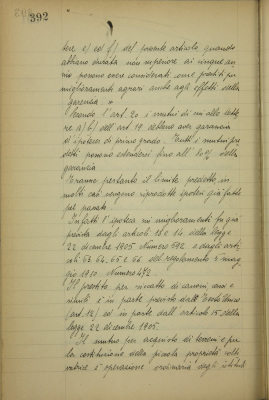 392
tere e) ed f) del presente articolo, quando
abbiano durata non superiore ai cinque an-
ni possono essere considerati come prestiti pu
miglioramenti agrari anche agli effetti della
garanzia. "
Secondo l'art. 20 i mutui di cui alle lette-
re a) b) dell'art. 19 debbono aver garanzia
d'ipoteca di primo grado. Tutti i mutui pre
detti possono estendersi fino all' 60% della
garanzia.
Eranne pertanto il limite predetto, in
molti casi vengono riprodotte ipotesi già fatte
nel passato.
Infatti l'ipoteca sui miglioramenti fu già
prevista dagli articoli 13 e 14 della legge
22 dicembre 1905 numero 592 e dagli arti-
coli 63. 64. 65 e 66 del regolamento 5 mag-
gio 1910 numero 472.
Il prestito per riscatto di canoni censi e
simili è in parte previsto dall' Testo Unico
(art. 12) ed in parte dall' articolo 15 della
legge 22 dicembre 1905.
Il mutuo per acquisto di terreni e per
la costituzione della piccola proprietà colti
vatrice è operazione ordinaria degli istituti